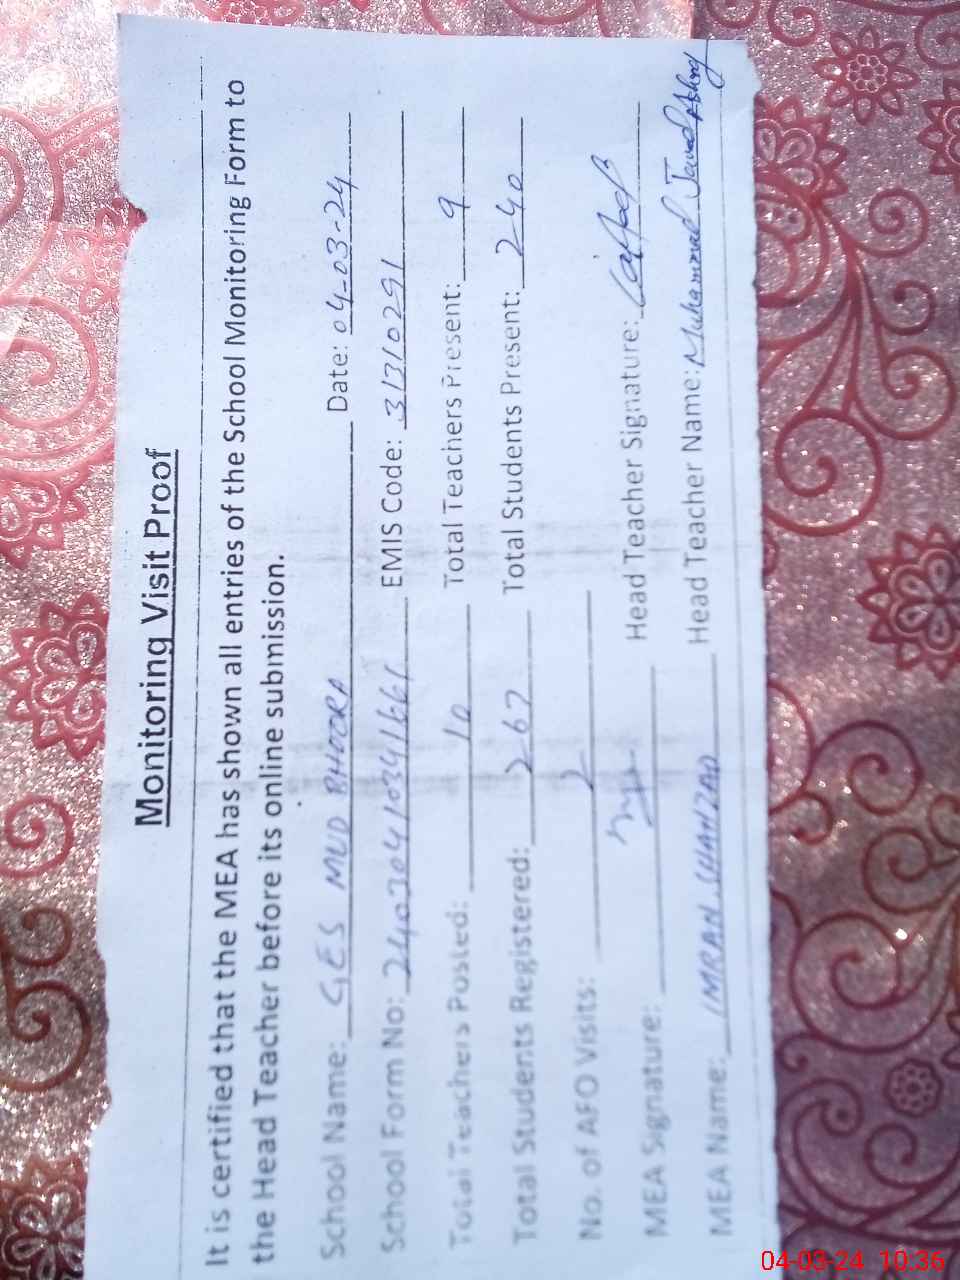 Monitoring Visit Proof
It is certified that the MEA has shown all entries of the School Monitoring Form to
the Head Teacher before its online submission.
School Name: GES MUD BHOORA Date: 04-03-24
School Form No: EMIS Code: 31310291
Total Teachers Posted: 10 Total Teachers Present: 9
Total Students Registered: 267 Total Students Present: 240
No. of AFO Visits: 2
MEA Signature: Head Teacher Signature:
MEA Name: IMRAN SHAHZAD Head Teacher Name: Muhammad Javed Ashraf
04-03-24 10:36